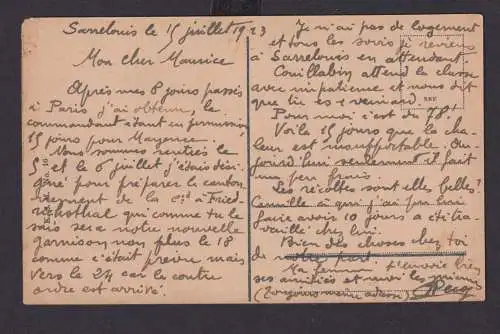 Sarrelouis le 15 juillet 1923
Mon cher Maurice
Après mes 8 jours passés
à Paris j'ai obtenu, le
commandant étant en permission
15 jours pour Mayence.
Nous sommes rentrés le
5 et le 6 juillet j'étais dési-
gné pour préparer le canton-
nement de la Cie à Fried-
richsthal qui comme tu le
sais sera notre nouvelle
garnison non plus le 18
comme c'était prévu mais
vers le 24 car le contre
ordre est arrivé.
Je n'ai pas de logement
et tous les soirs je reviens
à Sarrelouis en attendant
Couillabin attend la classe
avec impatience et nous dit
que tu es veinard.
Pour moi c'est du 78!
Voilà 15 jours que la cha-
leur est insupportable. Au-
jourd'hui seulement il fait
un peu frais.
Les récoltes sont elles belles?
Camille à qui j'ai pu lui
faire avoir 10 jours a été tra-
vailler chez lui.
Bien des choses chez toi
de notre part.
Ma femme t'envoie ses
amitiés et moi les miennes
(Toujours même adresse)